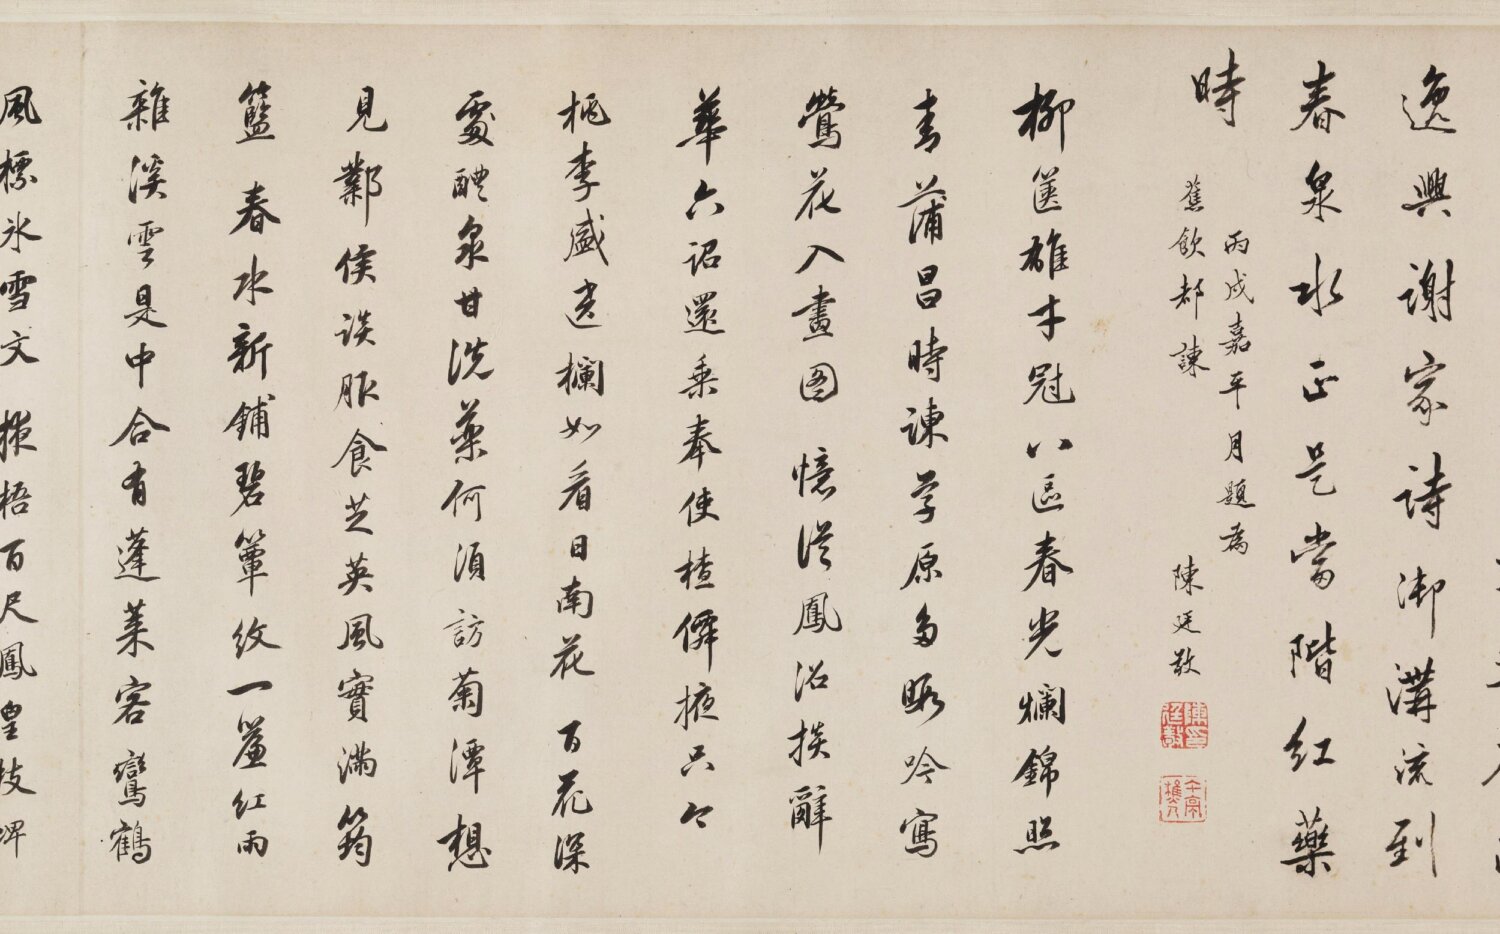 逸興謝家詩御溝流到
春泉水正是當階紅藥
時
丙戌嘉平月題為
蕉飲都諫
陳廷敬
柳篋雄才冠八區春光爛錦照
青蒲昌時諫學原多暇吟寫
鶯花入畫圖 憶從鳳沼掞辭
華六詔還乘奉使楂僻掖只今
桃李盛迷欄如看日南花 百花深
處醴泉甘洗藥何須訪菊潭想
見鄴侯談服食芝英風實滿筠
籃 春水新鋪碧簟紋一簾紅雨
雜溪雲是中合有蓬萊客鸞鶴
風標冰雪文 掖梧百尺鳳皇枝